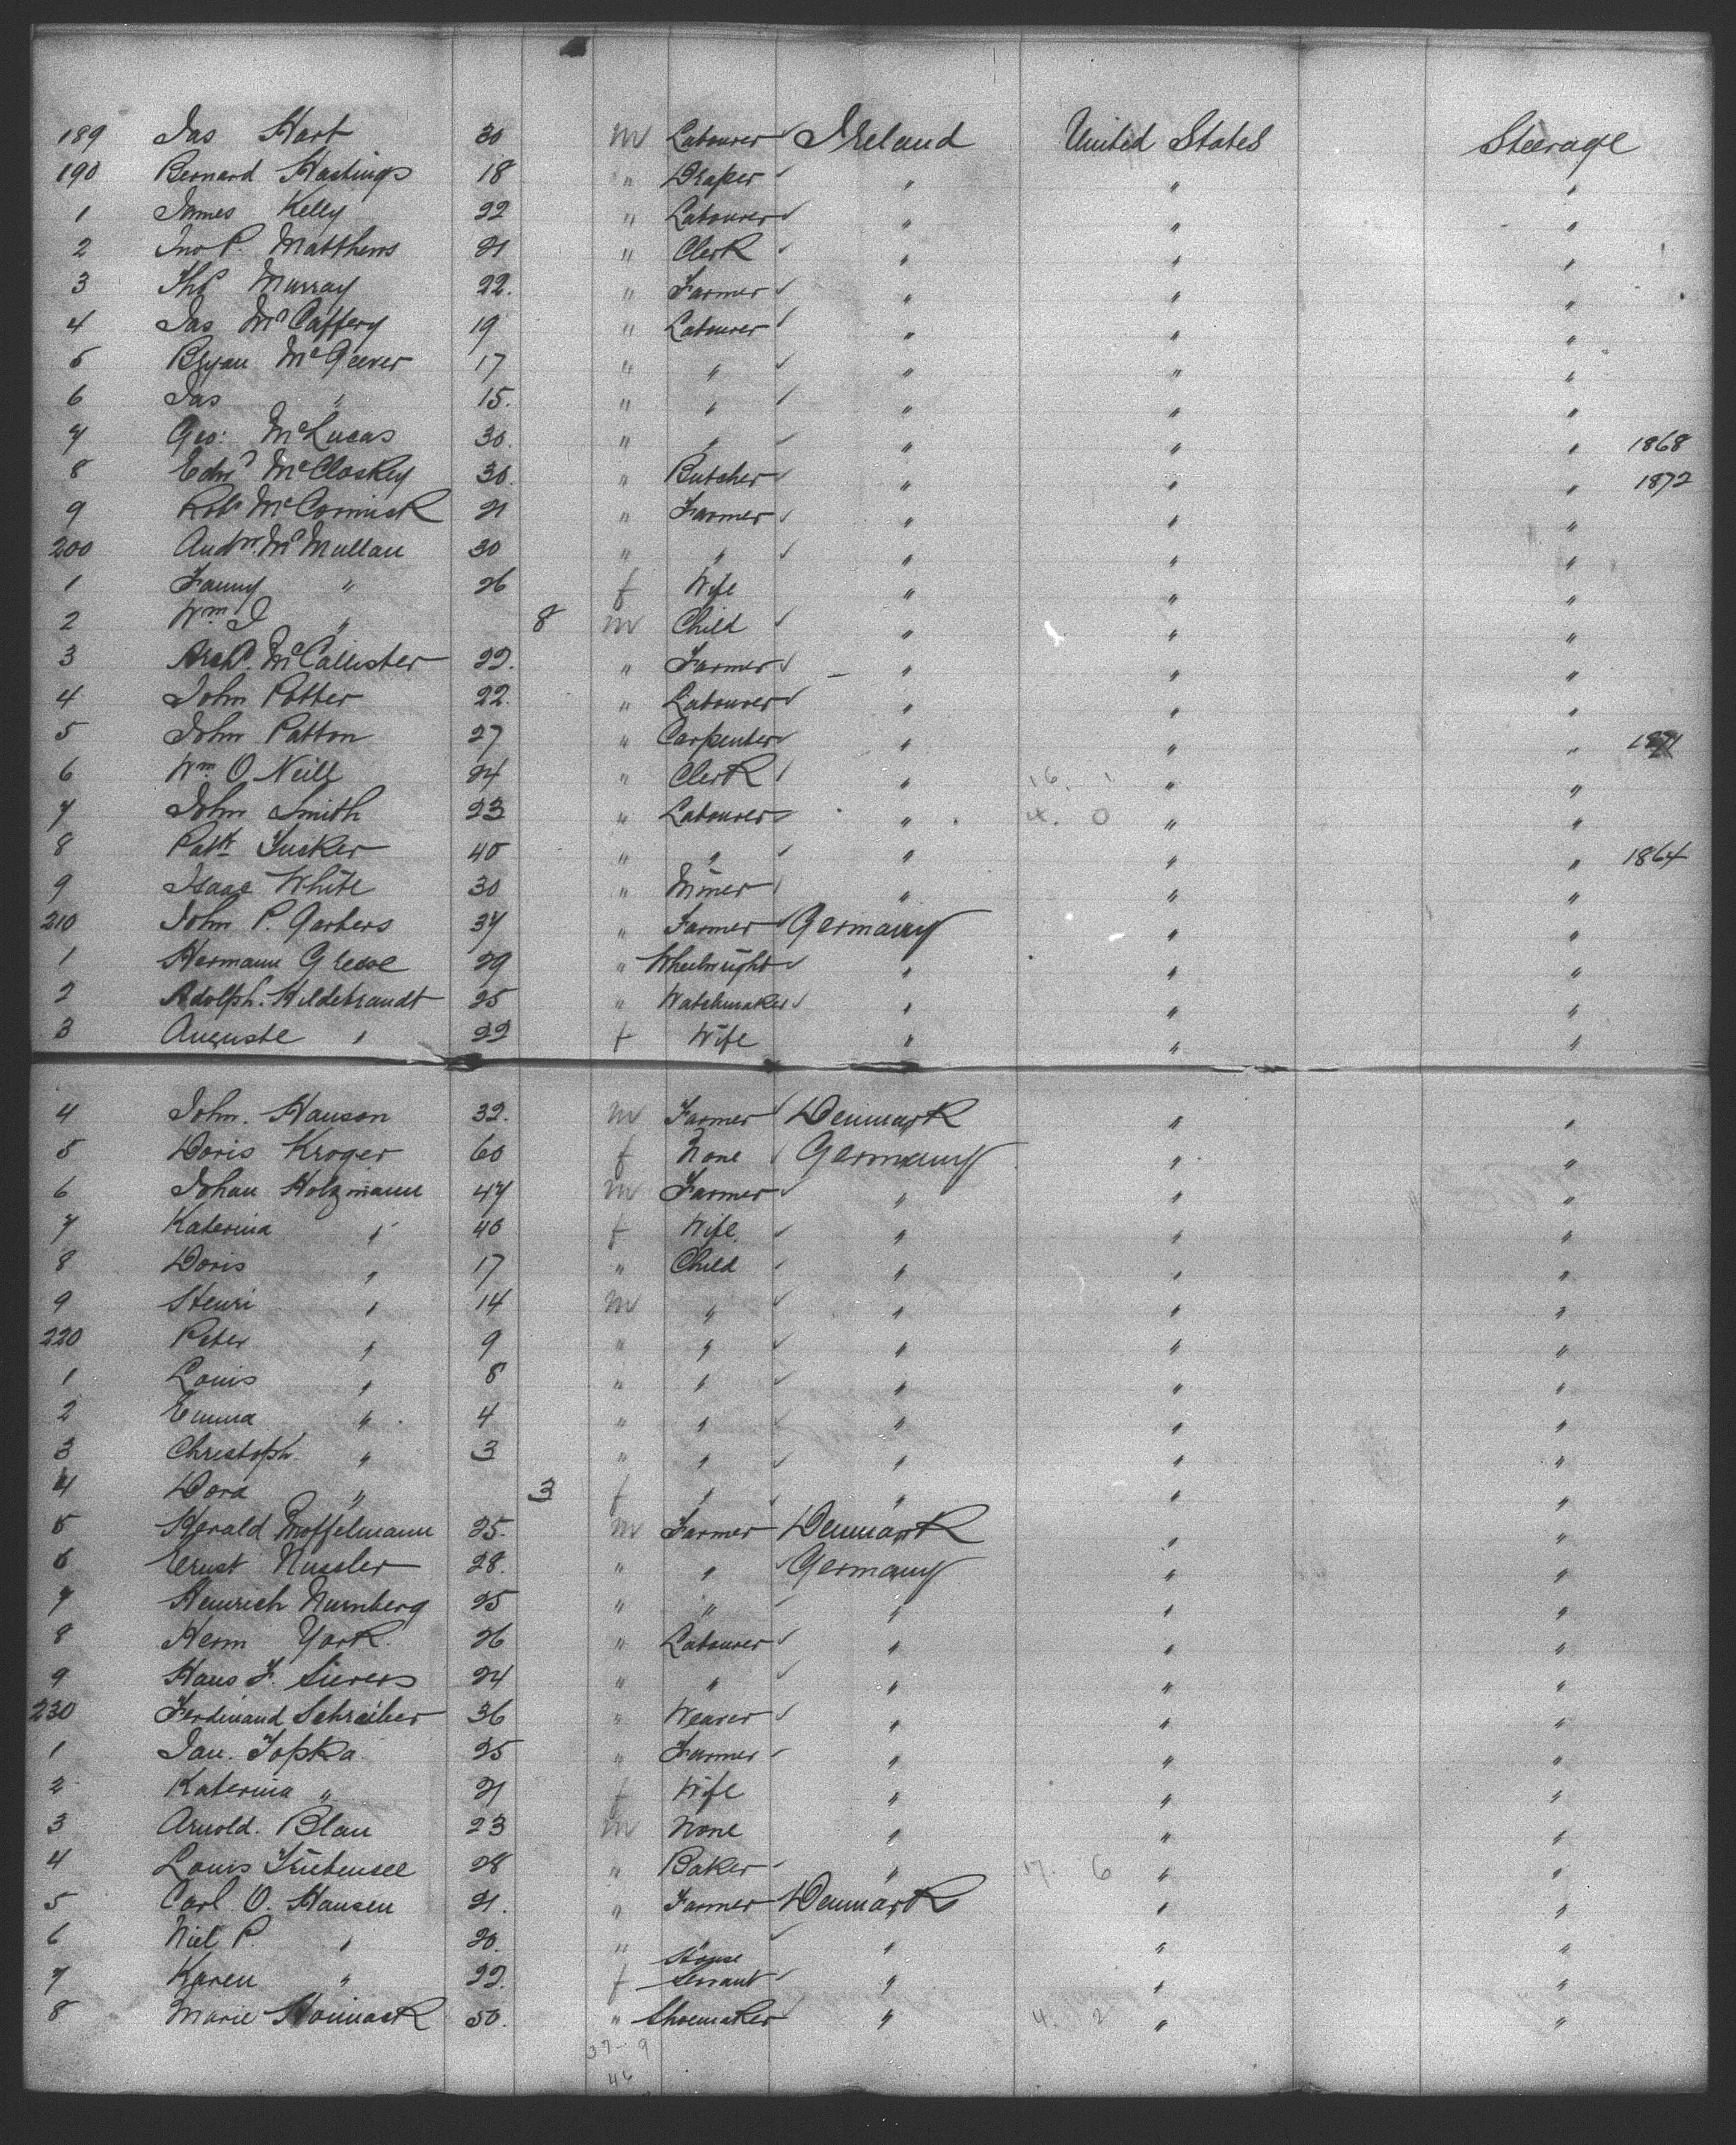 189 Jas Hart 30 m Labourer Ireland United States Steerage
190 Bernard Hastings 18 " Draper " " "
1 James Kelly 22 " Labourer " " "
2 Jno P. Matthews 21 " Clerk " " "
3 Thos Murray 22. " Farmer " " "
4 Jas McCaffery 19 " Labourer " " "
5 Bryan McGeever 17 " " " " "
6 Jas " 15. " " " " "
7 Geo: McLucas 30. " " " " " 1868
8 Edwd McCloskey 30. " Butcher " " " 1872
9 Robt McCormick 21 " Farmer " " "
200 Andw. McMullan 30 " " " " "
1 Fanny " 26 f Wife " " "
2 Wm J " 8 m Child " " "
3 Archd. McCallister 22. " Farmer " " "
4 John Potter 22. " Labourer " " "
5 John Patton 27 " Carpenter " " "
6 Wm O Neill 24 " Clerk " 16. 1 " "
7 John Smith 23 " Labourer " 4. 0 " "
8 Patk Tucker 40 " " " " " 1864
9 Isaac White 30 " Miner " " "
210 John P. Garbers 37 " Farmer Germany " "
1 Hermann 29 " Wheelwright " " "
2 Adolph. Hildebrandt 25 " Watchmaker " " "
3 Auguste " 22 f Wife " " "
4 John. Hanson 32. m Farmer Denmark " "
5 Doris Kroger 60 f None Germany " "
6 Johan Holzmann 47 m Farmer " " "
7 Katerina " 40 f Wife. " " "
8 Doris " 17 " Child " " "
9 Henri " 14 m " " " "
220 Peter " 9 " " " " "
1 Louis " 8 " " " " "
2 Emma " 4 " " " " "
3 Christoph. " 3 " " " " "
4 Dora " 3 f " " " "
5 Harald 25. m Farmer Denmark " "
6 Ernst Nussler 28. " " Germany " "
7 Heinrich Nurnberg 25 " " " " "
8 Herm York. 26 " Labourer " " "
9 Hans F. Sievers 24 " " " " "
230 Ferdinand Schreiber 36 " Weaver " " "
1 Jan. Topka 25 " Farmer " " "
2 Katerina " 21 f Wife " " "
3 Arnold. Blau 23 m None " " "
4 Louis 28 " Baker " 17. 6 " "
5 Carl. O. Hansen 21. " Farmer Denmark " "
6 Niel P. " 20. " " " " "
7 Karen " 22. f House Servant " " "
8 Marie 50. " Shoemaker " 4. 2 " "